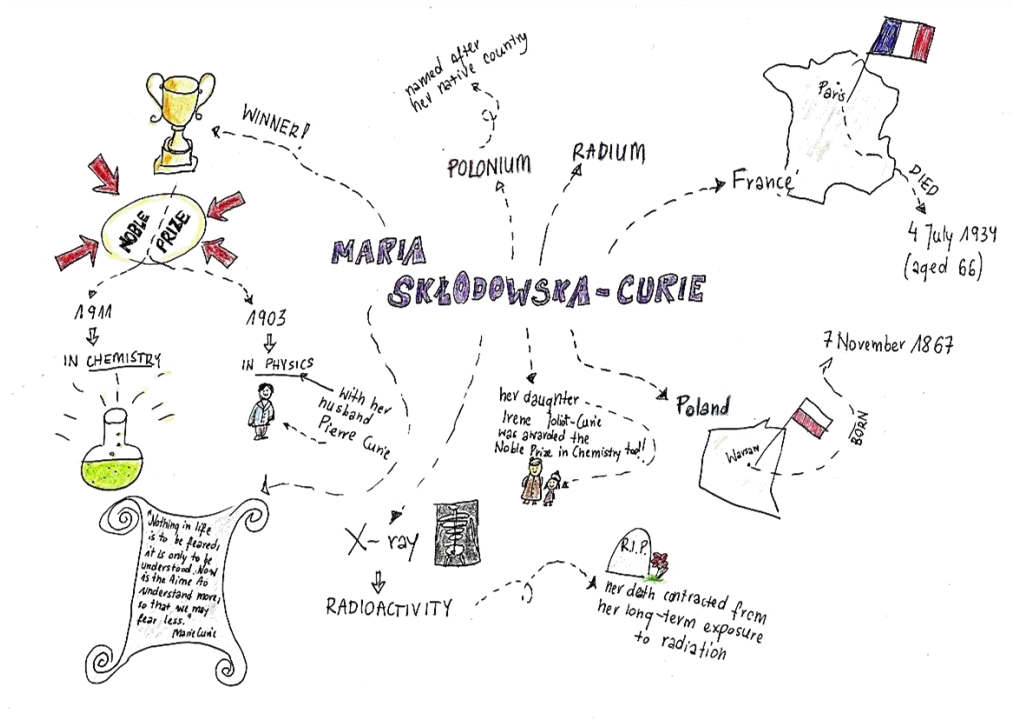 MARIA
SKŁODOWSKA-CURIE
WINNER!
NOBLE
PRIZE
1911
IN CHEMISTRY
1903
IN PHYSICS
with her
husband
Pierre Curie
"Nothing in life
is to be feared,
it is only to be
understood. Now
is the time to
understand more,
so that we may
fear less."
Marie Curie
POLONIUM
named after
her native country
RADIUM
France
Paris
DIED
4 July 1934
(aged 66)
Poland
Warsaw
BORN
7 November 1867
her daughter
Irene Joliot-Curie
was awarded the
Noble Prize in Chemistry too!!
X-ray
RADIOACTIVITY
R.I.P.
her death contracted from
her long-term exposure
to radiation